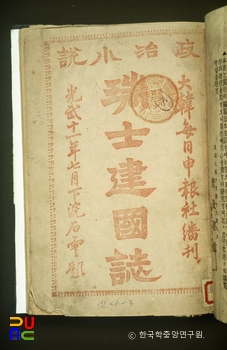 政治小說
大韓每日申報社繙刊
瑞士建國誌
光武十一年七月下浣石雲題
© 한국학중앙연구원